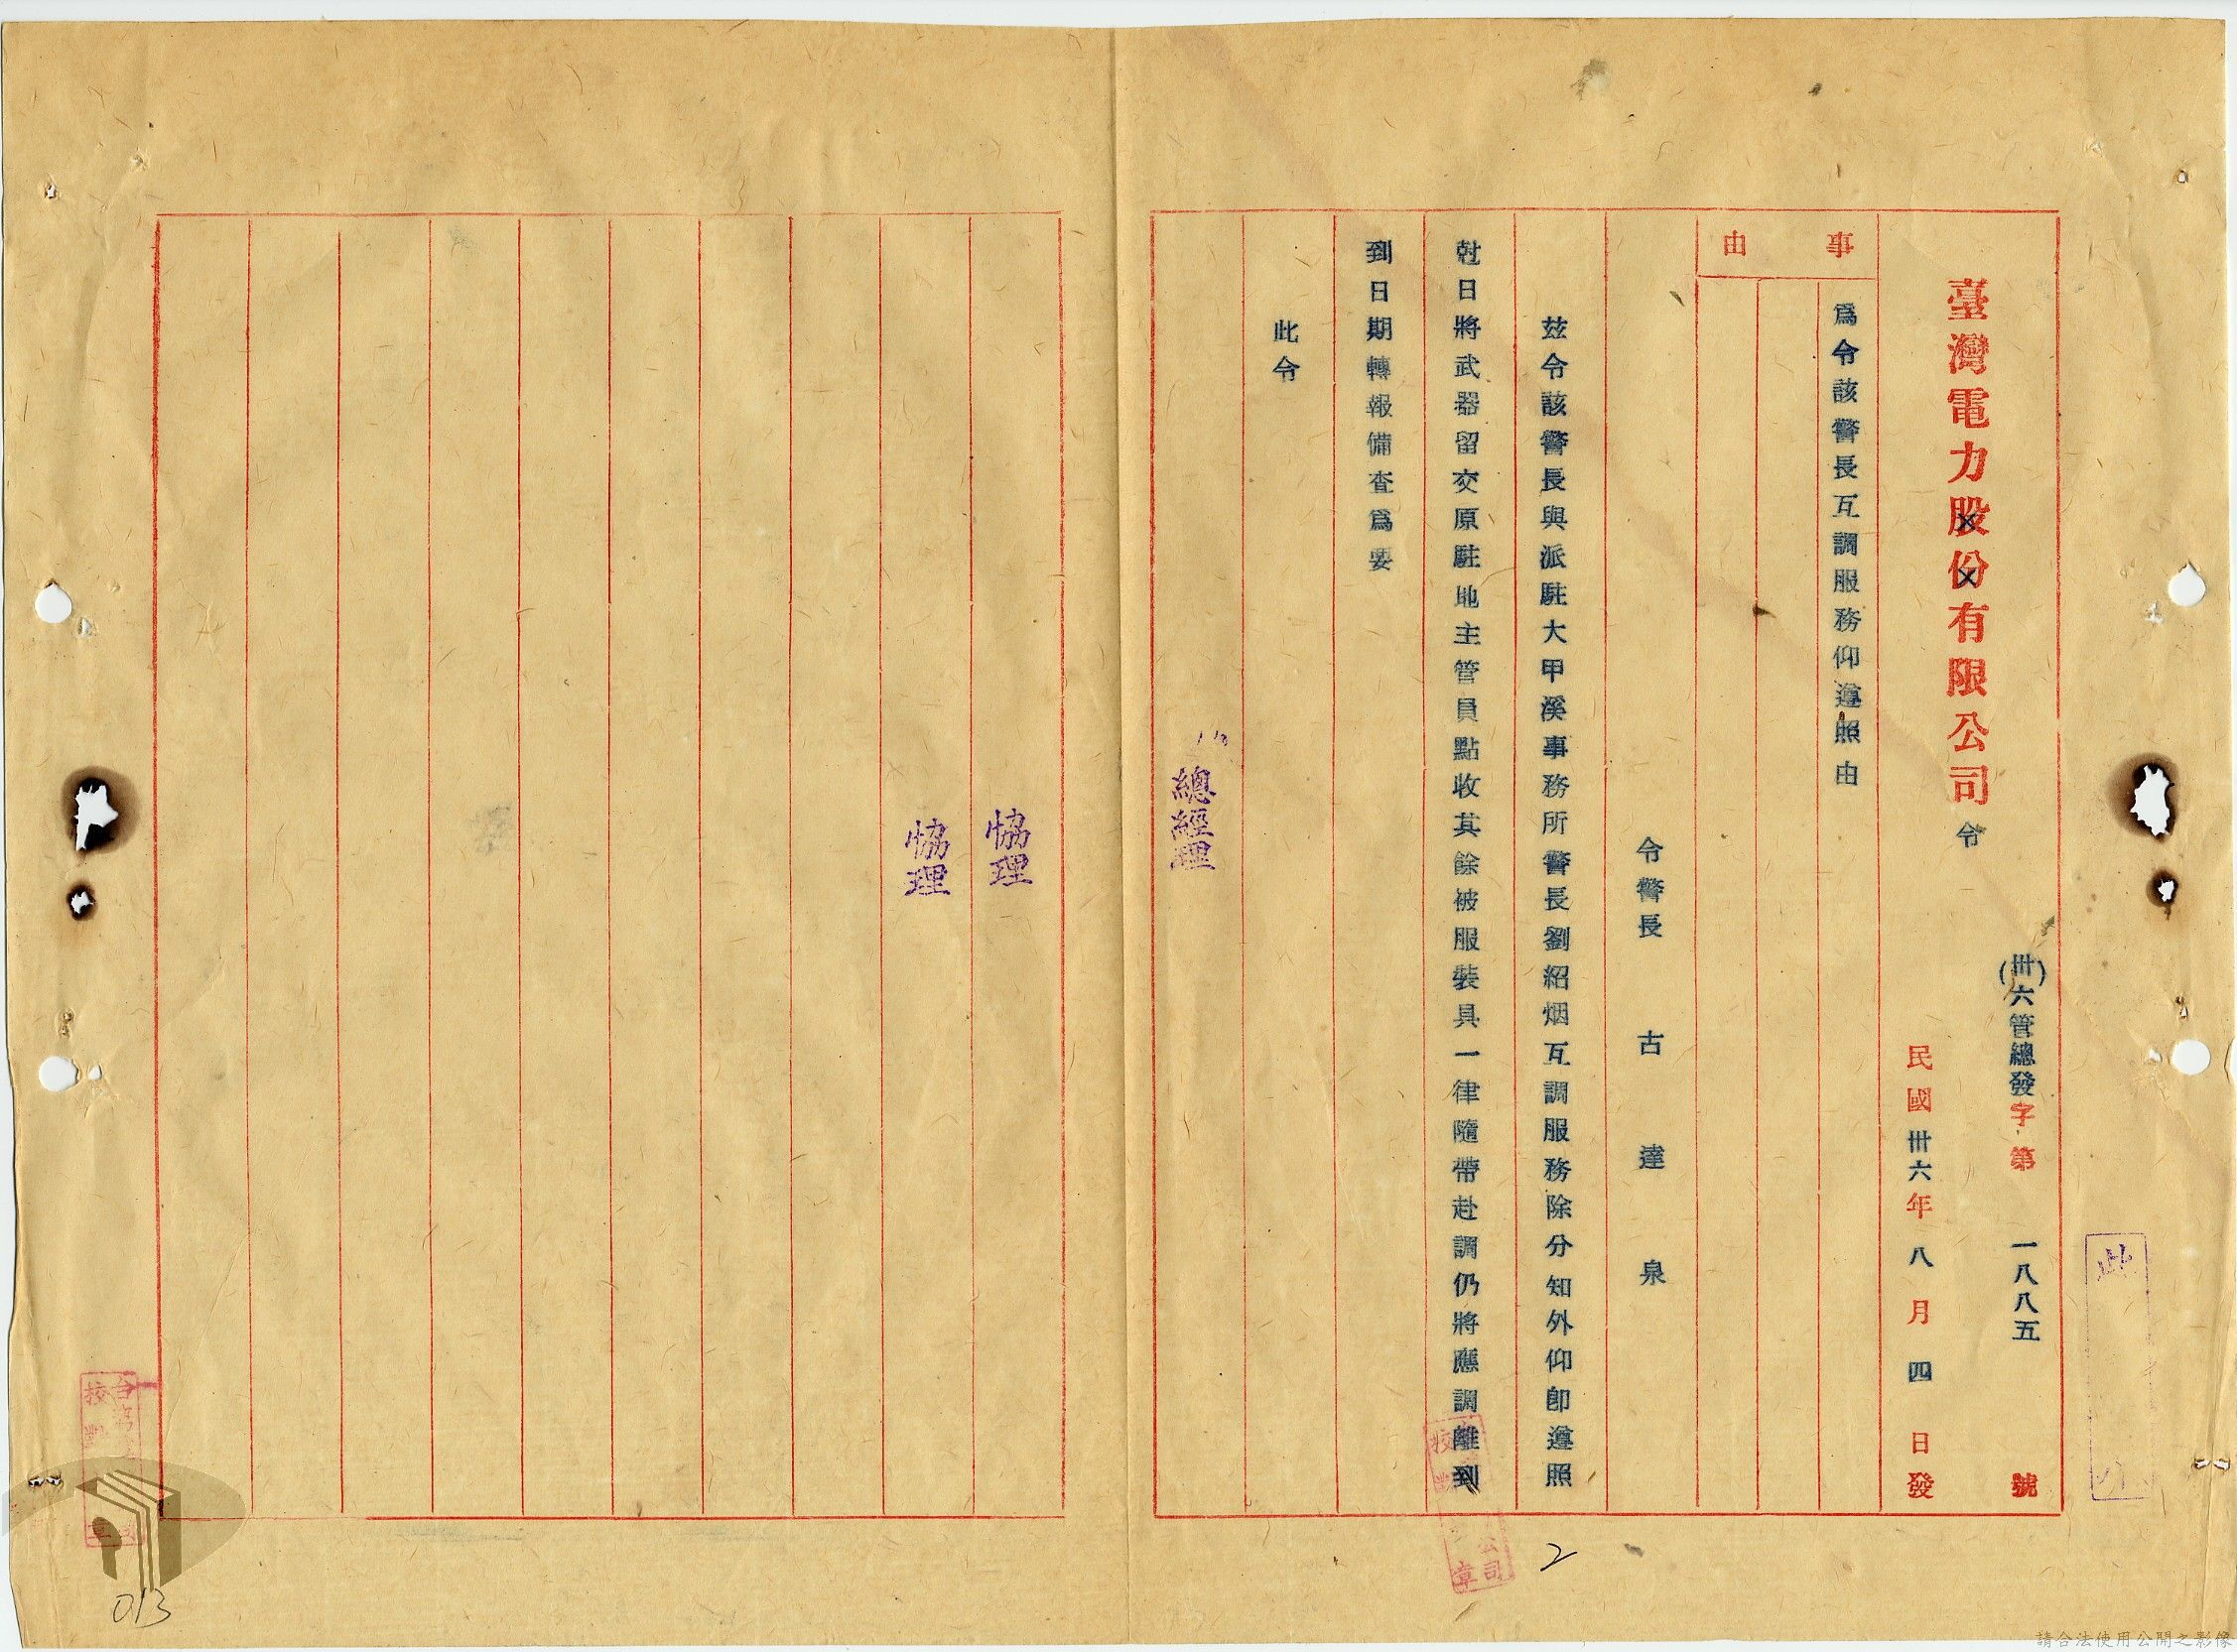 此
(卅六)管總發字第一八八五號
臺灣電力股份有限公司令
民國卅六年八月四日發
事由
為令該警長互調服務仰遵照由
令警長 古達泉
茲令該警長與派駐大甲溪事務所警長劉紹烟互調服務除分知外仰卽遵照
尅日將武器留交原駐地主管員點收其餘被服裝具一律隨帶赴調仍將應調離到
到日期轉報備查為要
此令
總經理
協理
協理
校對
公司
章
台灣
校對
章
2
013
請合法使用公開之影像